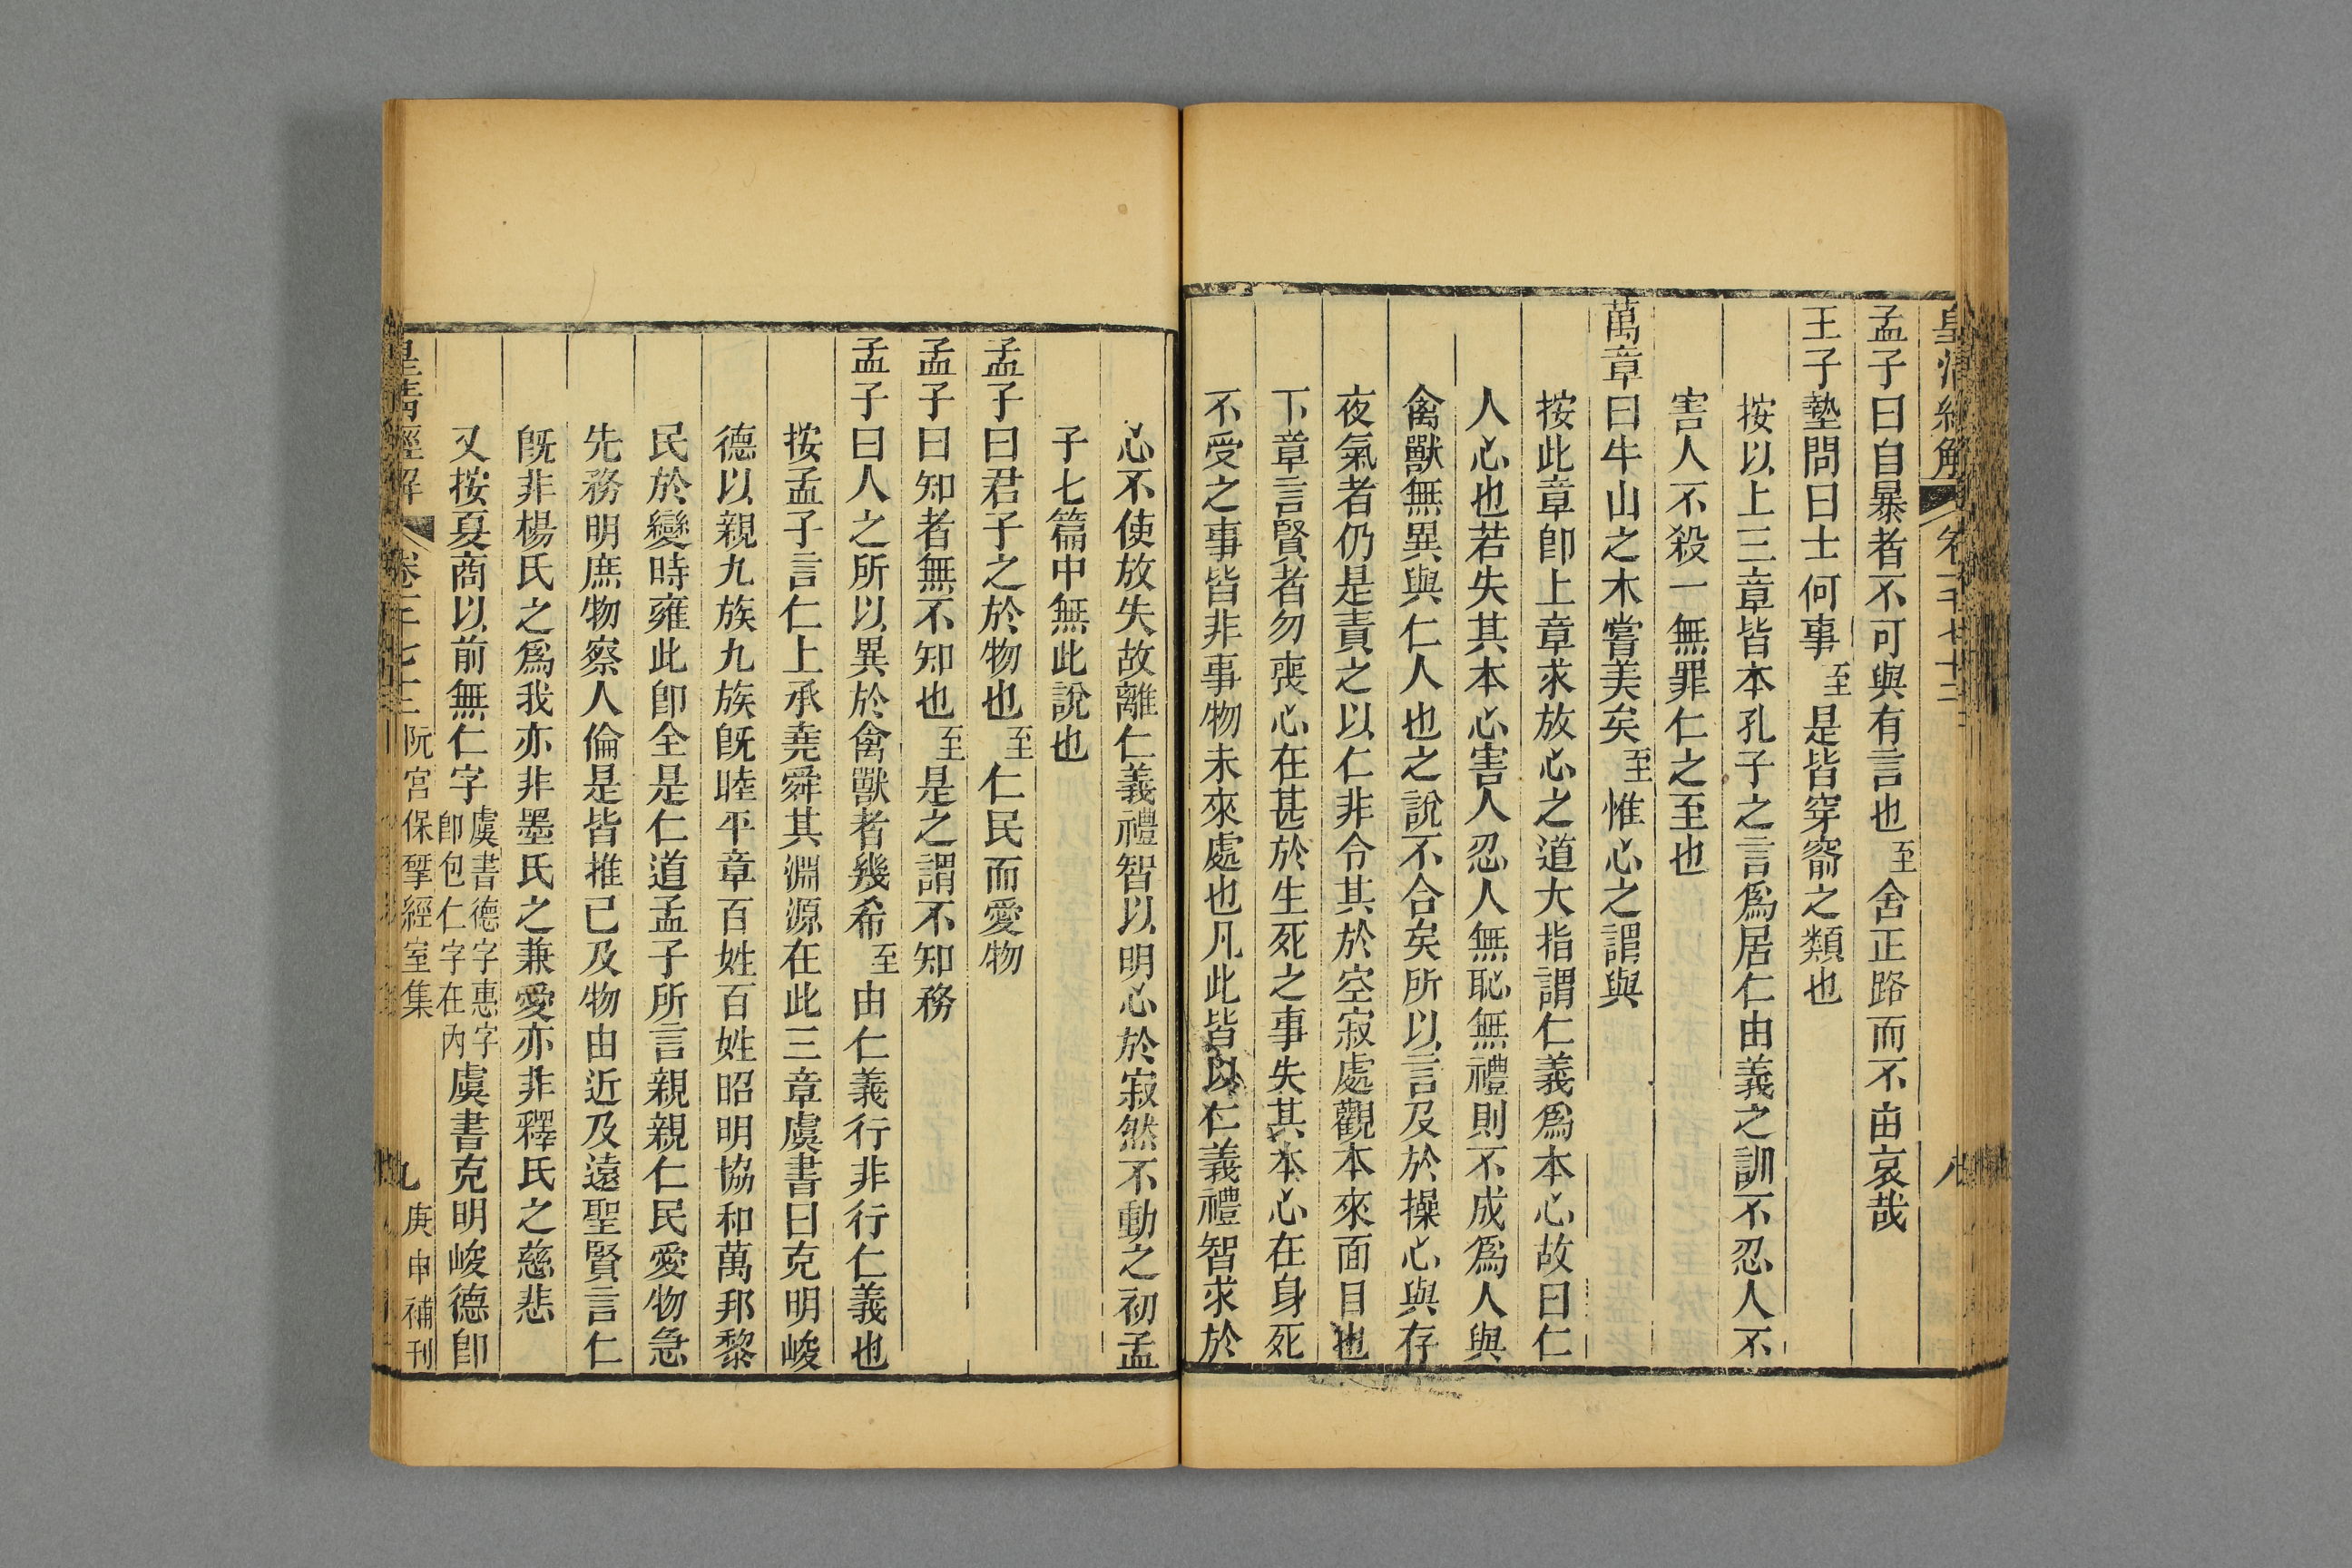 皇清經解 卷一千七十二 八
孟子曰自暴者不可與有言也至舍正路而不由哀哉
王子墊問曰士何事至是皆穿窬之類也
按以上三章皆本孔子之言爲居仁由義之訓不忍人不
害人不殺一無罪仁之至也
萬章曰牛山之木嘗美矣至惟心之謂與
按此章卽上章求放心之道大指謂仁義爲本心故曰仁
人心也若失其本心害人忍人無恥無禮則不成爲人與
禽獸無異與仁人也之說不合矣所以言及於操心與存
夜氣者仍是責之以仁非令其於空寂處觀本來面目也
下章言賢者勿喪心在甚於生死之事失其本心在身死
不受之事皆非事物未來處也凡此皆以仁義禮智求於
心不使放失故離仁義禮智以明心於寂然不動之初孟
子七篇中無此說也
孟子曰君子之於物也至仁民而愛物
孟子曰知者無不知也至是之謂不知務
孟子曰人之所以異於禽獸者幾希至由仁義行非行仁義也
按孟子言仁上承堯舜其淵源在此三章虞書曰克明峻
德以親九族九族旣睦平章百姓百姓昭明協和萬邦黎
民於變時雍此卽全是仁道孟子所言親親仁民愛物急
先務明庶物察人倫是皆推己及物由近及遠聖賢言仁
旣非楊氏之爲我亦非墨氏之兼愛亦非釋氏之慈悲
又按夏商以前無仁字虞書德字惠字卽包仁字在內虞書克明峻德卽
皇清經解 卷一千七十二 阮宮保揅經室集 九 庚申補刊